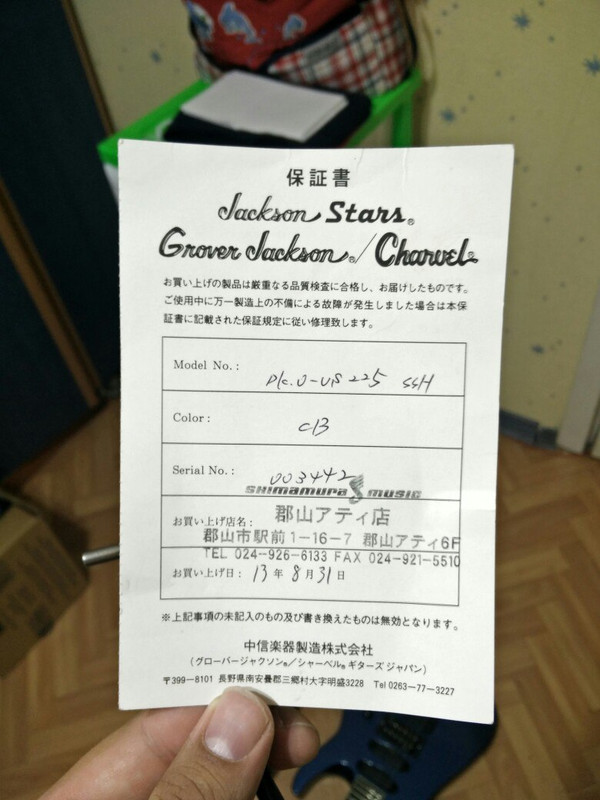 保証書
Jackson Stars®
Grover Jackson®/Charvel®
お買い上げの製品は厳重なる品質検査に合格し、お届けしたものです。
ご使用中に万一製造上の不備による故障が発生しました場合は本保
証書に記載された保証規定に従い修理致します。
Model No.: SSH
Color: CB
Serial No.: 003442
SHIMAMURA MUSIC
お買い上げ店名: 郡山アティ店
郡山市駅前1-16-7 郡山アティ6F
TEL 024-926-6133 FAX 024-921-5510
お買い上げ日: 13年 8月31日
※上記事項の未記入のもの及び書き換えたものは無効となります。
中信楽器製造株式会社
(グローバージャクソン®/シャーベル® ギターズ ジャパン)
〒399-8101 長野県南安曇郡三郷村大字明盛3228 Tel 0263-77-3227